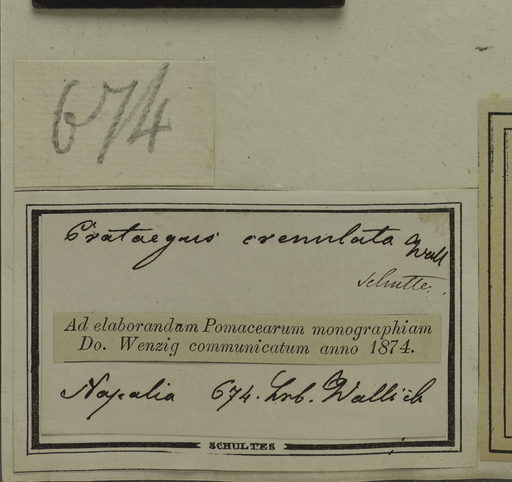 674
Crataegus crenulata Wall
Ad elaborandam Pomacearum monographiam
Do. Wenzig communicatum anno 1874.
Napalia 674. hrb. Wallich
SCHULTES